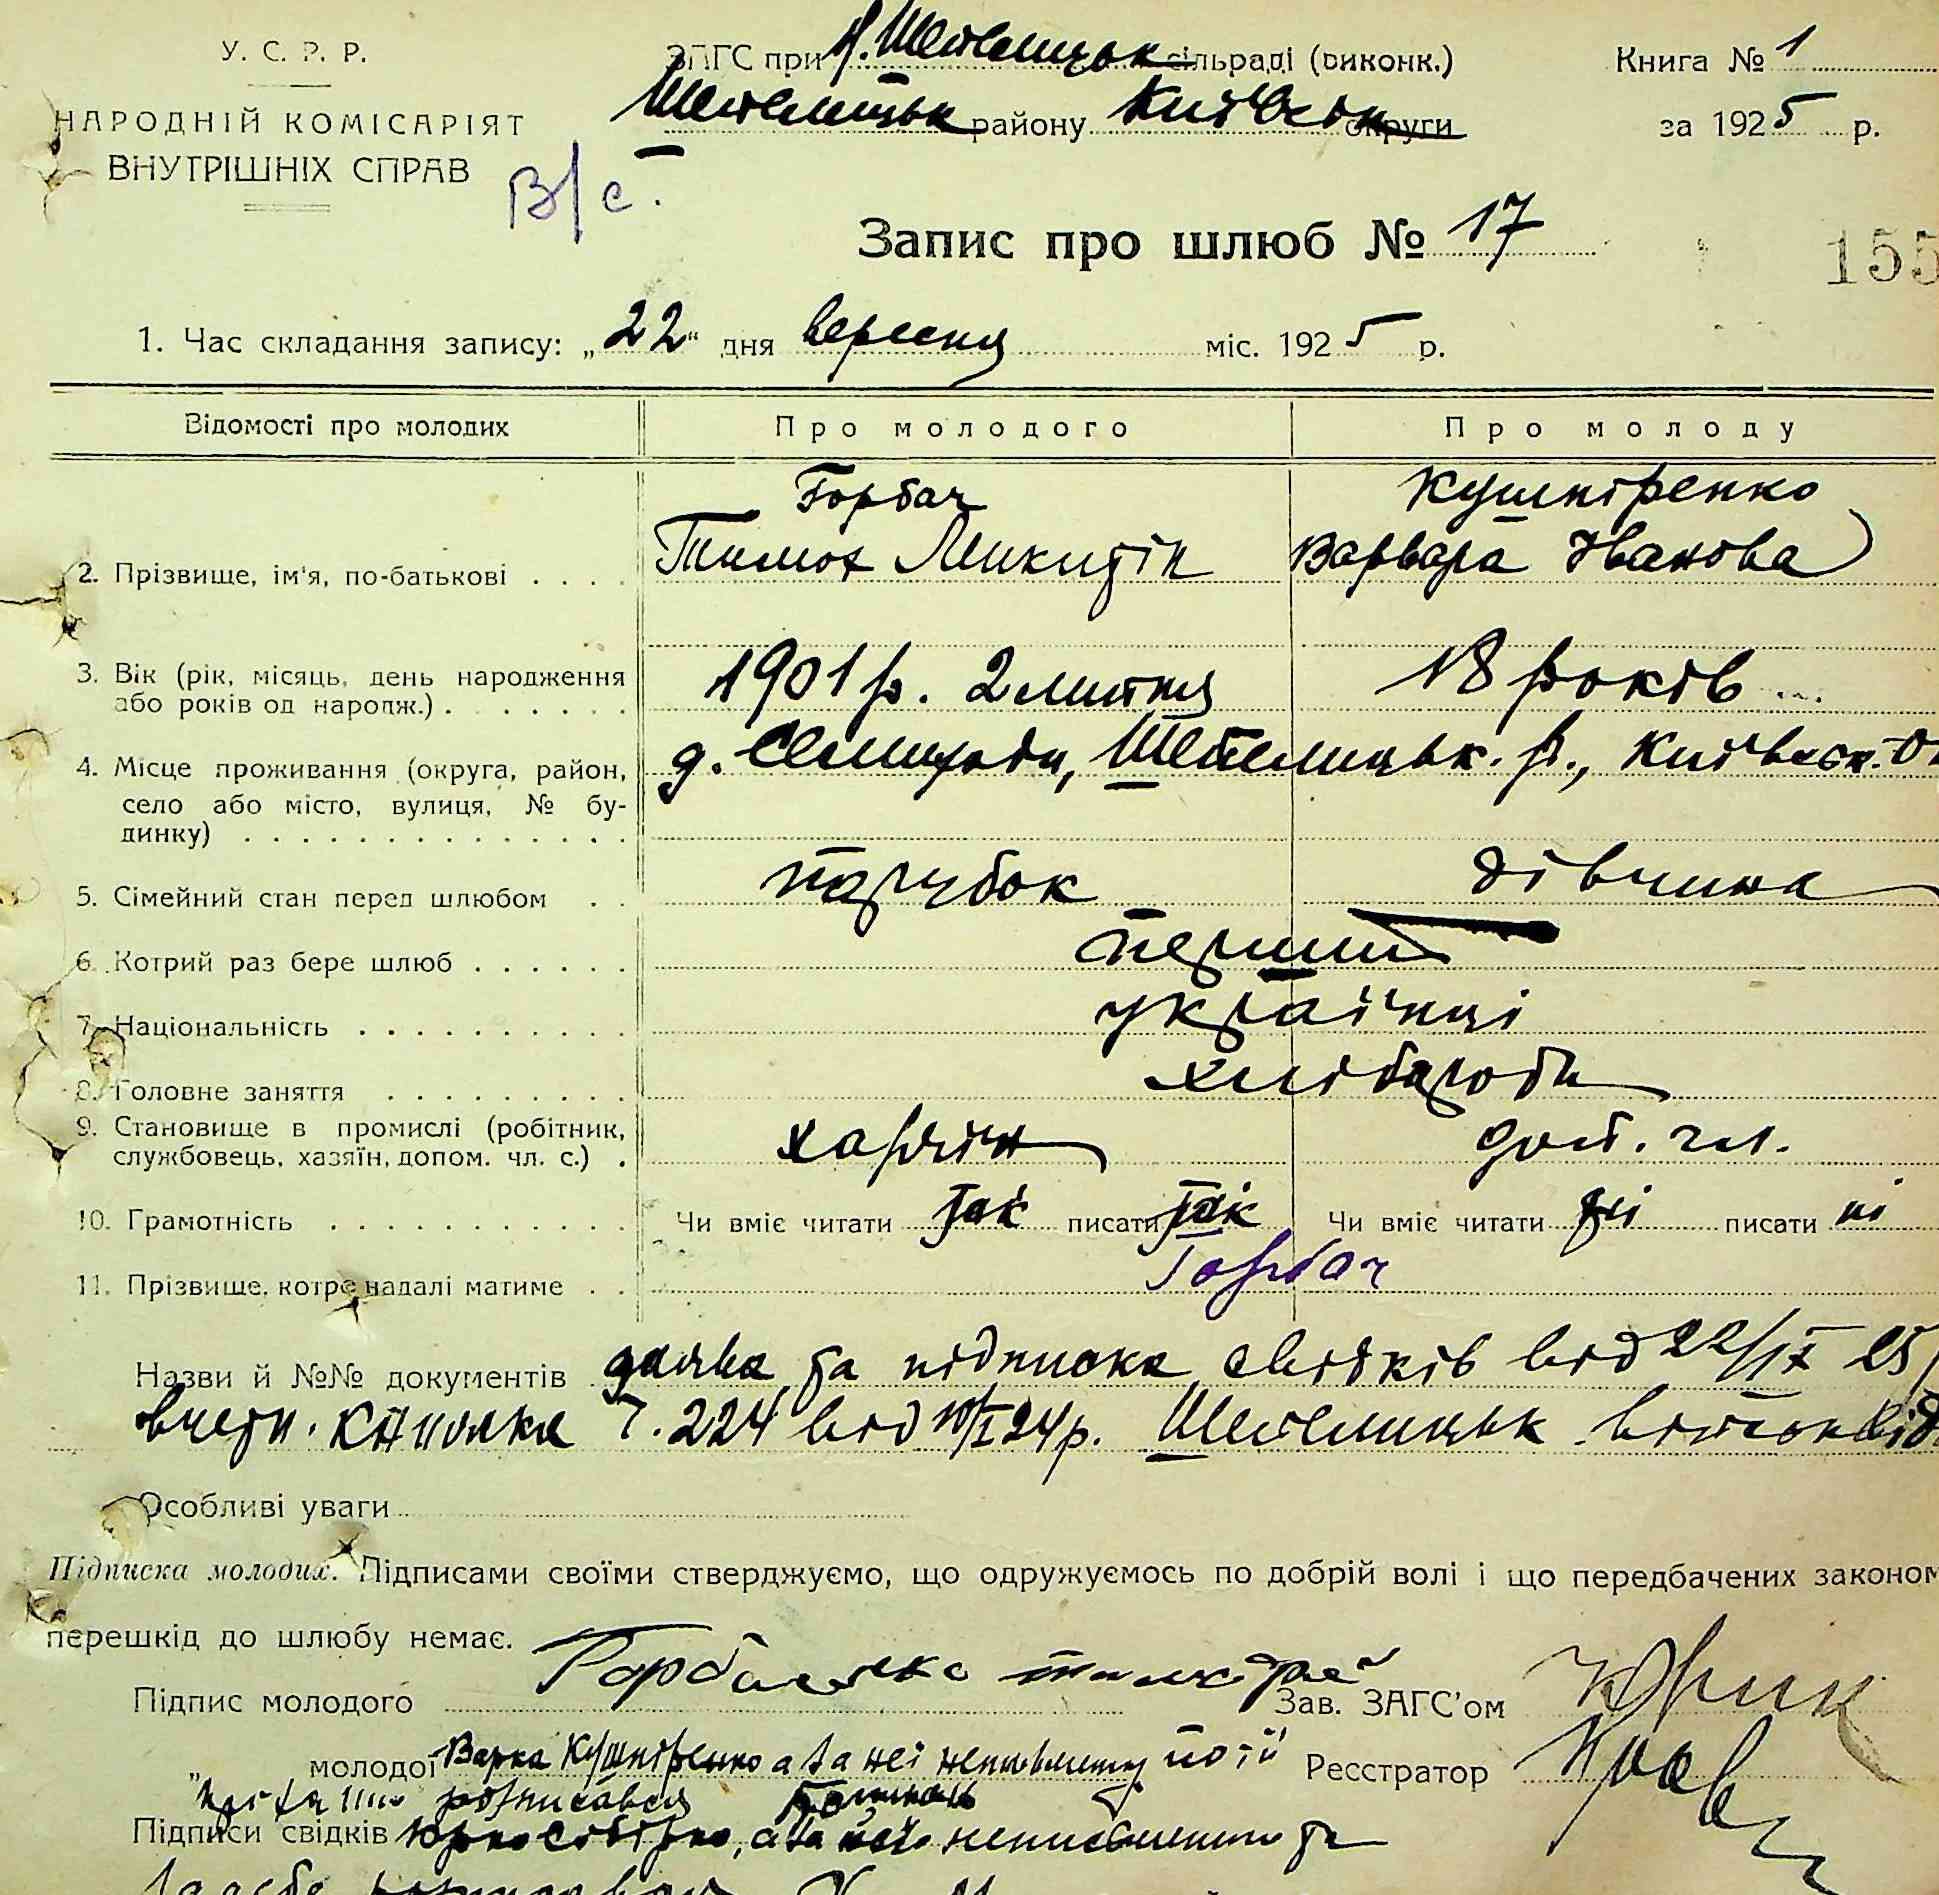 У. С. Р. Р.
НАРОДНІЙ КОМІСАРІЯТ
ВНУТРІШНІХ СПРАВ
В/с.
ЗАГС при Н. Шепелицьк сільраді (виконк.)
Шепелицьк району Київськ округи
Книга № 1
за 1925 р.
Запис про шлюб № 17
155
1. Час складання запису: „22“ дня вересня міс. 1925 р.
Відомості про молодих
Про молодого
Про молоду
2. Прізвище, ім'я, по-батькові . . . .
Горбач
Тимох Микитін
Кушніренко
Варвара Іванова
3. Вік (рік, місяць, день народження
або років од народж.) . . . . . . .
1901 р. 2 лютня
18 років
4. Місце проживання (округа, район,
село або місто, вулиця, № бу-
динку) . . . . . . . . . . . . . .
д. Семиходи, Шепелицьк. р., Київськ.
5. Сімейний стан перед шлюбом . .
парубок
дівчина
6. Котрий раз бере шлюб . . . . . .
перший
7. Національність . . . . . . . . . .
українці
8. Головне заняття . . . . . . . . .
хлібороби
9. Становище в промислі (робітник,
службовець, хазяїн, допом. чл. с.) .
хазяїн
доп. чл.
10. Грамотність . . . . . . . . . . .
Чи вміє читати так писати так
Чи вміє читати ні писати ні
11. Прізвище, котре надалі матиме . .
Горбач
Назви й №№ документів заява та підписка свідків від 22/IX 25
книжка Ч. 224 від 10/I 24р. Шепелицьк
Особливі уваги
Підписка молодих. Підписами своїми стверджуємо, що одружуємось по добрій волі і що передбачених законом
перешкід до шлюбу немає.
Підпис молодого
Зав. ЗАГС'ом
„ молодої Варка Кушніренко а за неї неписьменну по її
Реєстратор
розписався
Підписи свідків неписьменного та
за себе